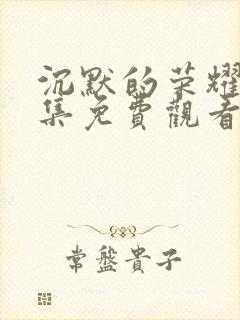 沉默的荣耀
集免費觀看
常盤貴子